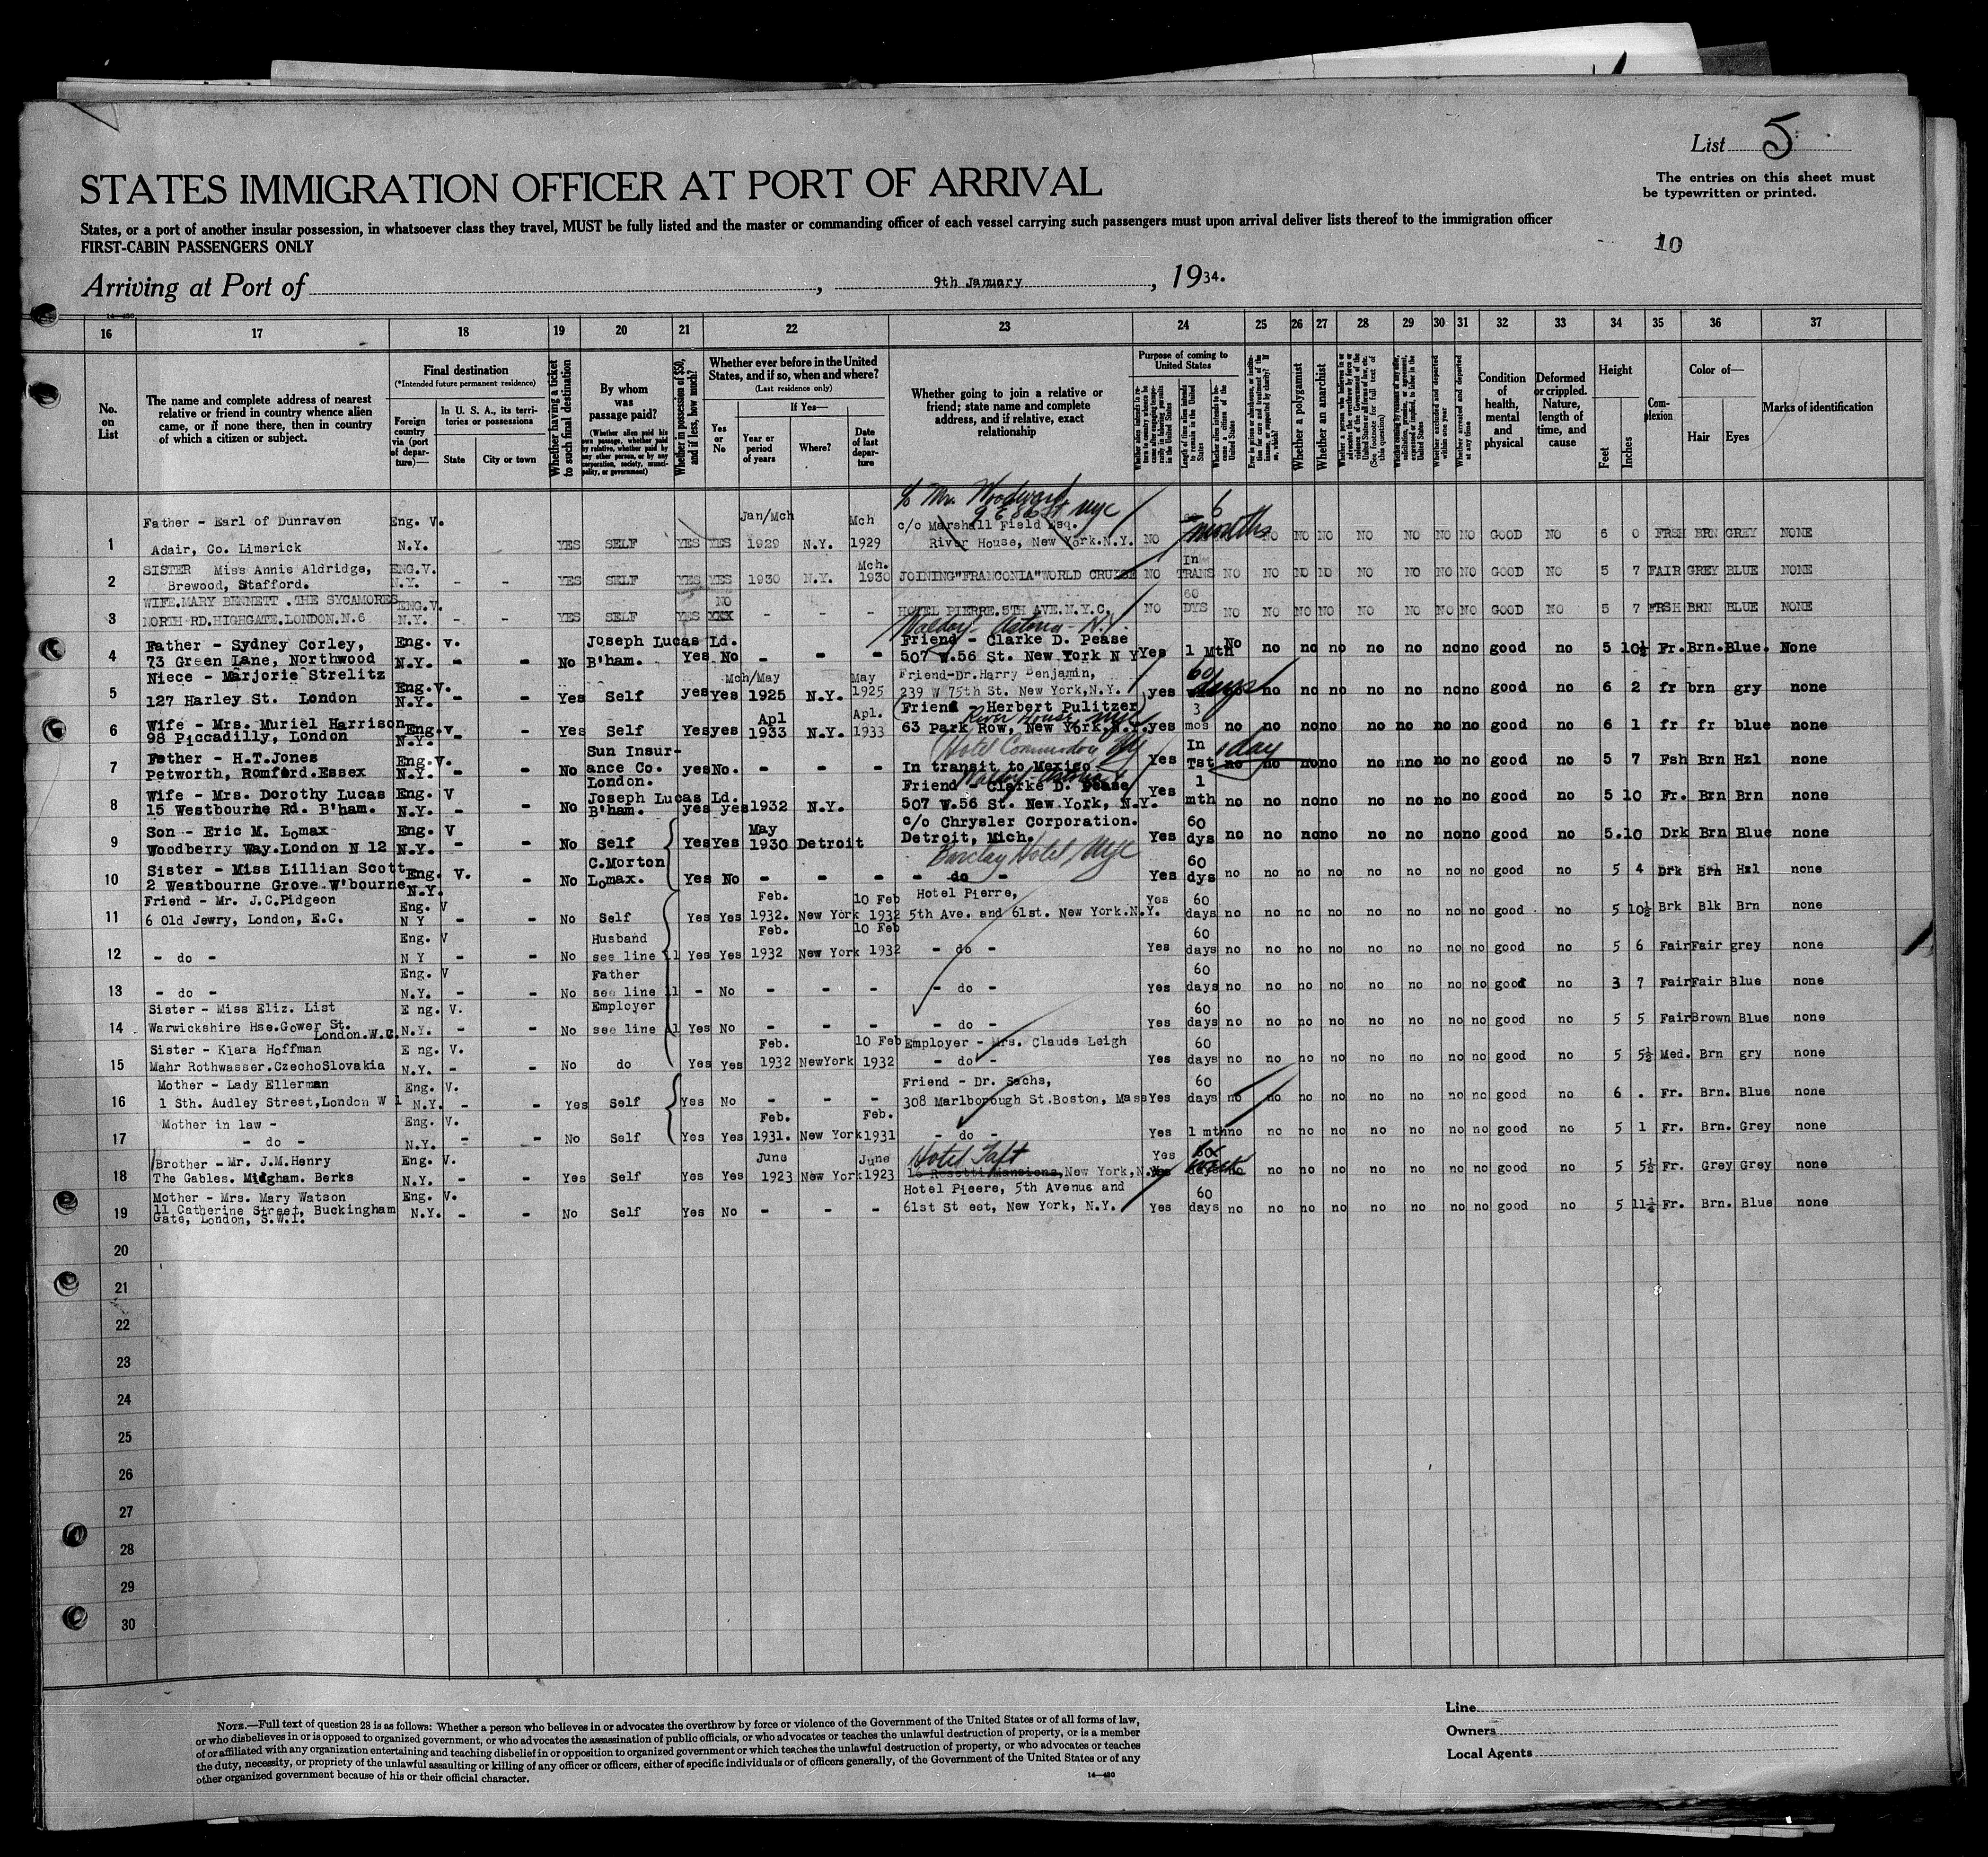 List 5
STATES IMMIGRATION OFFICER AT PORT OF ARRIVAL
The entries on this sheet must
be typewritten or printed.
States, or a port of another insular possession, in whatsoever class they travel, MUST be fully listed and the master or commanding officer of each vessel carrying such passengers must upon arrival deliver lists thereof to the immigration officer
FIRST-CABIN PASSENGERS ONLY
10
Arriving at Port of , 9th January , 1934.
16 17 18 19 20 21 22 23 24 25 26 27 28 29 30 31 32 33 34 35 36 37
No. on List
The name and complete address of nearest relative or friend in country whence alien came, or if none there, then in country of which a citizen or subject.
Final destination
(*Intended future permanent residence)
Foreign country via (port of departure)—
In U. S. A., its territories or possessions
State
City or town
Whether having a ticket to such final destination
By whom was passage paid?
(Whether alien paid his own passage, whether paid by relative, whether paid by any other person, or by any corporation, society, municipality, or government)
Whether in possession of $50, and if less, how much?
Whether ever before in the United States, and if so, when and where?
(Last residence only)
Yes or No
If Yes—
Year or period of years
Where?
Date of last departure
Whether going to join a relative or friend; state name and complete address, and if relative, exact relationship
Purpose of coming to United States
Length of time alien intends to remain in the United States
Whether alien intends to become a citizen of the United States
Whether a polygamist
Whether an anarchist
Whether excluded and deported within one year
Whether arrested and deported at any time
Condition of health, mental and physical
Deformed or crippled. Nature, length of time, and cause
Height
Feet
Inches
Complexion
Color of—
Hair
Eyes
Marks of identification
c/o Mr. Woodward
9 E 86 St NYC
Father - Earl of Dunraven Eng. V. Jan/Mch Mch c/o Marshall Field Esq. 6 months
1 Adair, Co. Limerick N.Y. YES SELF YES YES 1929 N.Y. 1929 River House, New York.N.Y. NO NO NO NO NO NO NO NO GOOD NO 6 0 FRSH BRN GREY NONE
SISTER Miss Annie Aldridge, ENG.V. Mch. In
2 Brewood, Stafford. N.Y. - - YES SELF YES YES 1930 N.Y. 1930 JOINING"FRANCONIA"WORLD CRUISE NO TRANS NO NO NO NO NO NO NO NO GOOD NO 5 7 FAIR GREY BLUE NONE
WIFE.MARY BENNETT .THE SYCAMORES ENG.V. NO 60
3 NORTH RD.HIGHGATE.LONDON.N.6 N.Y. - - YES SELF YES XXX - - - HOTEL PIERRE.5TH AVE.N.Y.C. NO DYS NO NO NO NO NO NO NO NO GOOD NO 5 7 FRSH BRN BLUE NONE
Waldorf Astoria - N.Y.
Father - Sydney Corley, Eng. v. Joseph Lucas Ld. Friend - Clarke D. Pease No
4 73 Green Lane, Northwood N.Y. - - No B'ham. Yes No - - - 507 W.56 St. New York N Y Yes 1 Mth no no no no no no no good no 5 10½ Fr. Brn. Blue. None
Niece - Marjorie Strelitz Eng.V. Mch/May May Friend-Dr.Harry Benjamin, 60 days
5 127 Harley St. London N.Y. - - Yes Self yes Yes 1925 N.Y. 1925 239 W 75th St. New York,N.Y. yes no no no no no no no good no 6 2 fr brn gry none
Wife - Mrs. Muriel Harrison Eng.v Apl Apl. Friend - Herbert Pulitzer 3
River House NYC
6 98 Piccadilly, London N.Y. - - Yes Self Yes yes 1933 N.Y. 1933 63 Park Row, New York,N.Y. yes mos no no no no no no no no good no 6 1 fr fr blue none
Hotel Commodore NY
Father - H.T.Jones Eng.V. Sun Insur- In 1 day
7 Petworth, Romford.Essex N.Y. - - No ance Co. London. yes No. - - - In transit to Mexico Yes Tst no no no no no no no no good no 5 7 Fsh Brn Hzl none
Waldorf-Astoria
Wife - Mrs. Dorothy Lucas Eng. V Joseph Lucas Ld. Friend - Clarke D. Pease 1
8 15 Westbourne Rd. B'ham. N.Y. - - No B'ham. yes yes 1932 N.Y. 507 W.56 St. New York, N.Y. Yes mth no no no no no no no no good no 5 10 Fr. Brn Brn none
Son - Eric M. Lomax Eng. V May c/o Chrysler Corporation. 60
9 Woodberry Way.London N 12 N.Y. - - No Self Yes Yes 1930 Detroit Detroit, Mich. Yes dys no no no no no no no no good no 5.10 Drk Brn Blue none
Barclay Hotel NYC
Sister - Miss Lillian Scott Eng. V. C.Morton 60
10 2 Westbourne Grove W'bourne N.Y. - No Lomax. Yes No - - - - do - Yes dys no no no no no no no no good no 5 4 Drk Brn Hzl none
Friend - Mr. J.C.Pidgeon Eng. V Feb. 10 Feb Hotel Pierre, 60
11 6 Old Jewry, London, E.C. N Y - - No Self Yes Yes 1932. New York 1932 5th Ave. and 61st. New York.N.Y. Yes days no no no no no no no no good no 5 10½ Brk Blk Brn none
Eng. V Husband Feb. 10 Feb 60
12 - do - N Y - - No see line 11 Yes Yes 1932 New York 1932 - do - Yes days no no no no no no no no good no 5 6 Fair Fair grey none
Eng. V Father 60
13 - do - N.Y. - - No see line 11 - No - - - - do - Yes days no no no no no no no no good no 3 7 Fair Fair Blue none
Sister - Miss Eliz. List E ng. V. Employer 60
14 Warwickshire Hse.Gower St. London.W.C. N.Y. - - No see line 11 Yes No - - - - do - Yes days no no no no no no no no good no 5 5 Fair Brown Blue none
Sister - Klara Hoffman E ng. V. Feb. 10 Feb Employer - Mrs. Claude Leigh 60
15 Mahr Rothwasser.CzechoSlovakia N.Y. - - No do Yes Yes 1932 NewYork 1932 - do - Yes days no no no no no no no no good no 5 5½ Med. Brn gry none
Mother - Lady Ellerman Eng. V. Friend - Dr. Sachs, 60
16 1 Sth. Audley Street,London W 1 N.Y. - - Yes Self Yes No - - - 308 Marlborough St.Boston, Mass Yes days no no no no no no no no good no 6 . Fr. Brn. Blue none
Mother in law - Eng. V. Feb. Feb.
17 - do - N.Y. - - No Self Yes Yes 1931. New York 1931 - do - Yes 1 mth no no no no no no no no good no 5 1 Fr. Brn. Grey none
Brother - Mr. J.M.Henry Eng. V. June June Hotel Taft Yes
18 The Gables. Midgham. Berks N.Y. - - Yes Self Yes Yes 1923 New York 1923 16 Rosetti Mansions, New York,N.Y. days no no no no no no no no good no 5 5½ Fr. Grey Grey none
Mother - Mrs. Mary Watson Eng. V. Hotel Pieere, 5th Avenue and 60
19 11 Catherine Street, Buckingham Gate, London, S.W.1. N.Y. - - No Self Yes No - - - 61st St eet, New York, N.Y. Yes days no no no no no no no no good no 5 11½ Fr. Brn. Blue none
20
21
22
23
24
25
26
27
28
29
30
Line
Owners
Local Agents
NOTE.—Full text of question 28 is as follows: Whether a person who believes in or advocates the overthrow by force or violence of the Government of the United States or of all forms of law,
or who disbelieves in or is opposed to organized government, or who advocates the assassination of public officials, or who advocates or teaches the unlawful destruction of property, or is a member
of or affiliated with any organization entertaining and teaching disbelief in or opposition to organized government or which teaches the unlawful destruction of property, or who advocates or teaches
the duty, necessity, or propriety of the unlawful assaulting or killing of any officer or officers, either of specific individuals or of officers generally, of the Government of the United States or of any
other organized government because of his or their official character.
14—430